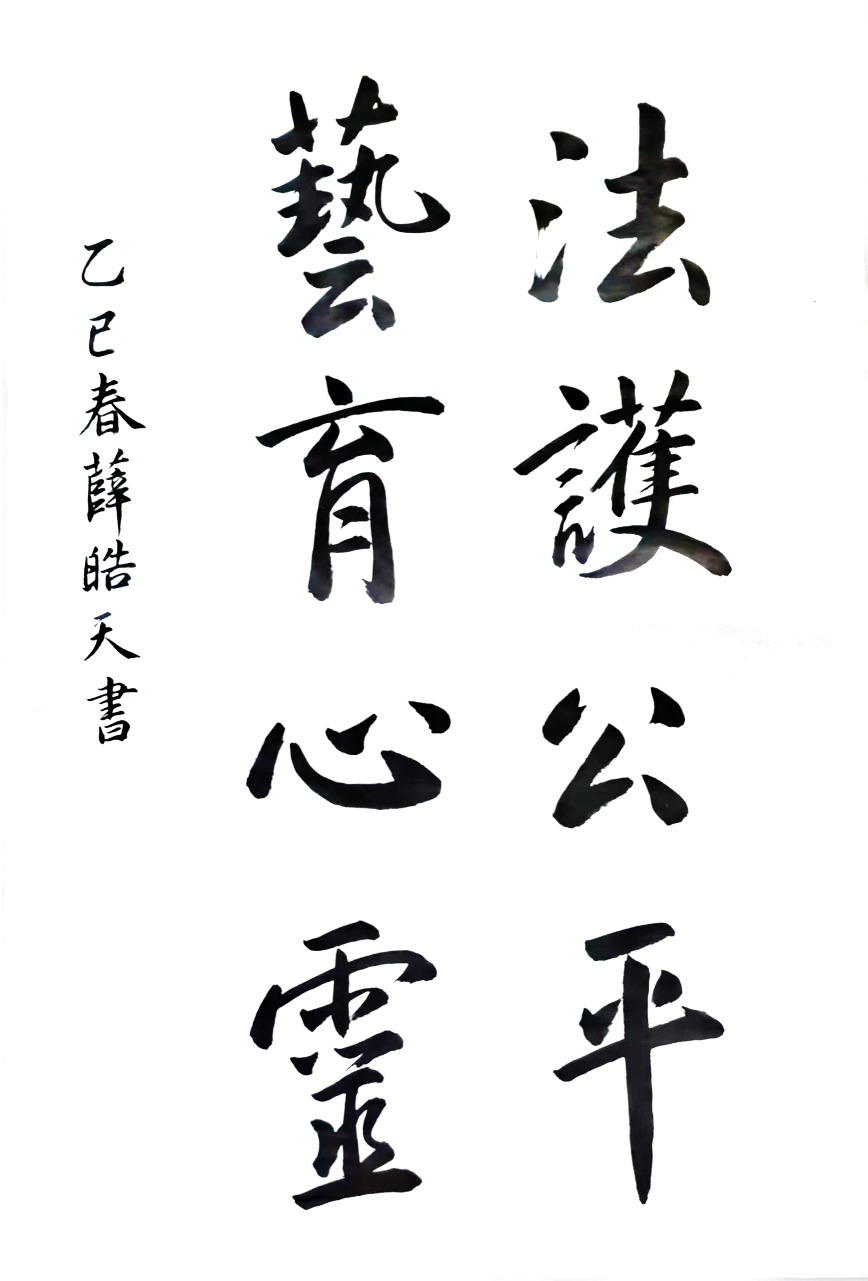 法護公平
藝育心靈
乙巳春薛皓天書